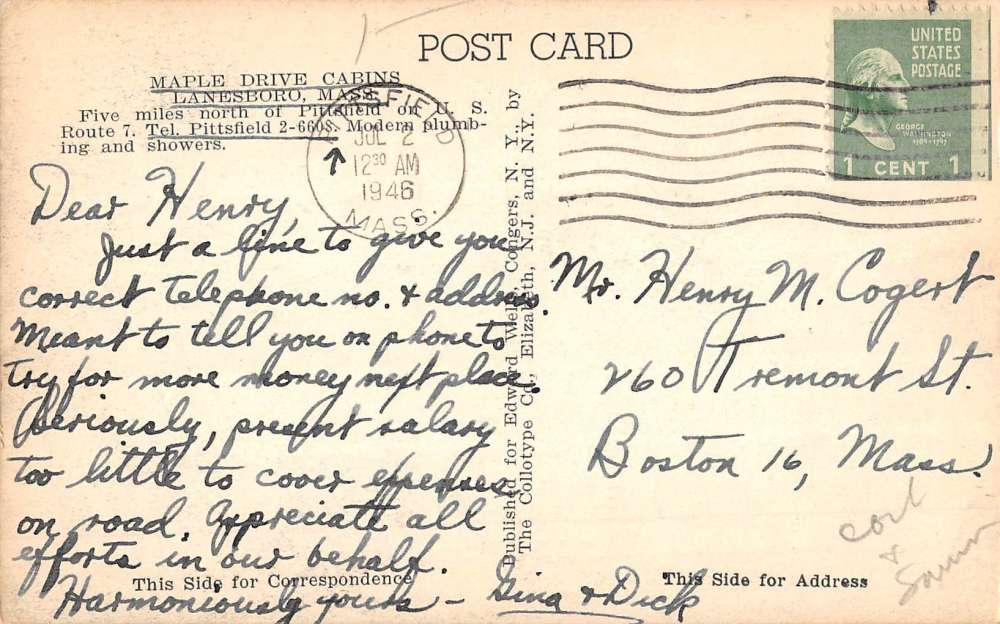 POST CARD
MAPLE DRIVE CABINS
LANESBORO, MASS.
Five miles north of Pittsfield on U. S.
Route 7. Tel. Pittsfield 2-6608. Modern plumb-
ing and showers.
PITTSFIELD
JUL 2
12 30 AM
1946
MASS.
UNITED
STATES
POSTAGE
GEORGE
WASHINGTON
1789-1797
1 CENT 1
Dear Henry,
Just a line to give you
correct telephone no. & address.
Meant to tell you on phone to
try for more money next place.
Obviously, present salary
too little to cover expenses
on road. Appreciate all
efforts in our behalf.
Harmoniously yours – Gina & Dick
This Side for Correspondence
Published for Edward Wells, Congers, N. Y., by
The Collotype Co., Elizabeth, N.J. and N.Y.
Mr. Henry M. Cogert
260 Tremont St.
Boston 16, Mass.
This Side for Address
&